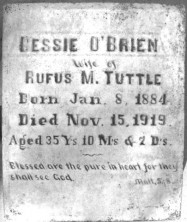 BESSIE O'BRIEN
Wife of
RUFUS M. TUTTLE
Born Jan. 8, 1884
Died Nov. 15, 1919
Aged 35 Ys 10 Ms & 2 Ds.
Blessed are the pure in heart for they
shall see God.
Matt. 5. 8.